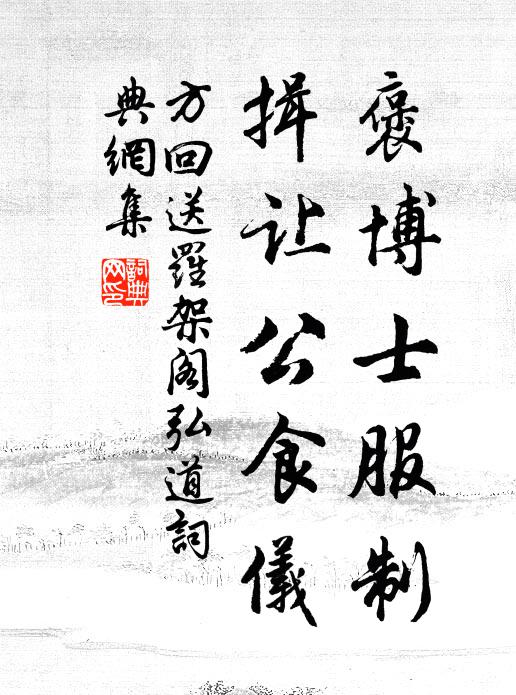 褒博士服制
揖让公食儀
方回送羅架阁弘道詞
典網集
詞典
网印